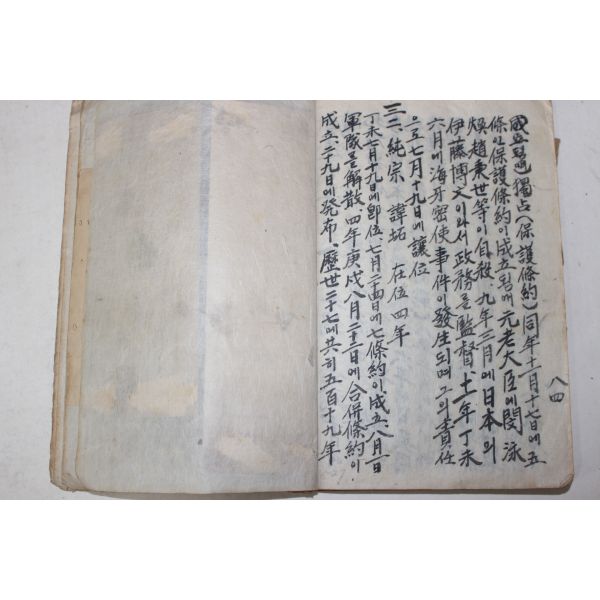 國立됨애 獨占(保護條約) 同年十一月十七日에 五
條인 保護條約이 成立됨애 元老大臣에 閔泳
煥 趙秉世等이 自殺、九年二月에 日本의
伊藤博文이 와서 政務를 監督、十一年丁未
六月에 海牙密使事件이 發生되며 그의 責任
으로 七月十九日에 讓位
三二、純宗 諱坧 在位四年
丁未七月十九日에 卽位、七月二十四日에 七條約이 成立、八月一日
軍隊를 解散、四年庚戌八月二十二日에 合併條約이
成立、二十九日에 発布、歷世二十七에 共히 五百十九年
八四